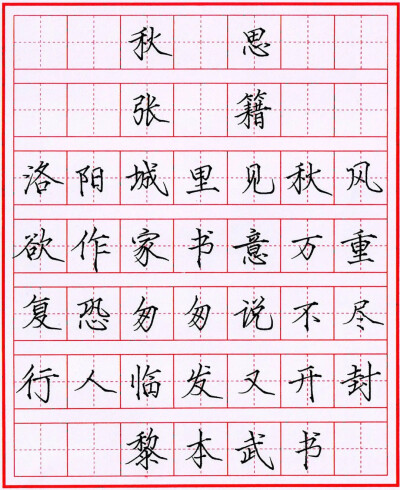 秋思
张籍
洛阳城里见秋风
欲作家书意万重
复恐匆匆说不尽
行人临发又开封
黎本武书